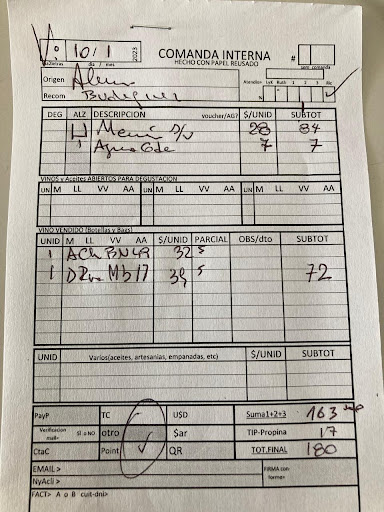 10/1 2023 COMANDA INTERNA #
dia / mes HECHO CON PAPEL REUSADO com comanda
Origen Atendio> LyK Ruth 1 2 3 Ric
Recom %
DEG ALZ DESCRIPION voucher/AG? $/UNID SUBTOT
Menú S/V 28 84
1 Agua 7 7
VINOS y Aceites ABIERTOS PARA DEGUSTACION
UN M LL VV AA UN M LL VV AA UN M LL VV AA
VINO VENDIDO (Botellas y Bags)
UNID M LL VV AA $/UNID PARCIAL OBS/dto SUBTOT
1 32 5
1 Mb17 39 5 72
UNID Varios(aceites, artesanias, empanadas, etc) $/UNID SUBTOT
PayP TC U$D Suma1+2+3 163
Verificacion mail= SI o NO otro $ar TIP-Propina 17
CtaC Point QR TOT.FINAL 180
EMAIL > FIRMA con
NyAcli >
FACT> A o B cuit-dni>